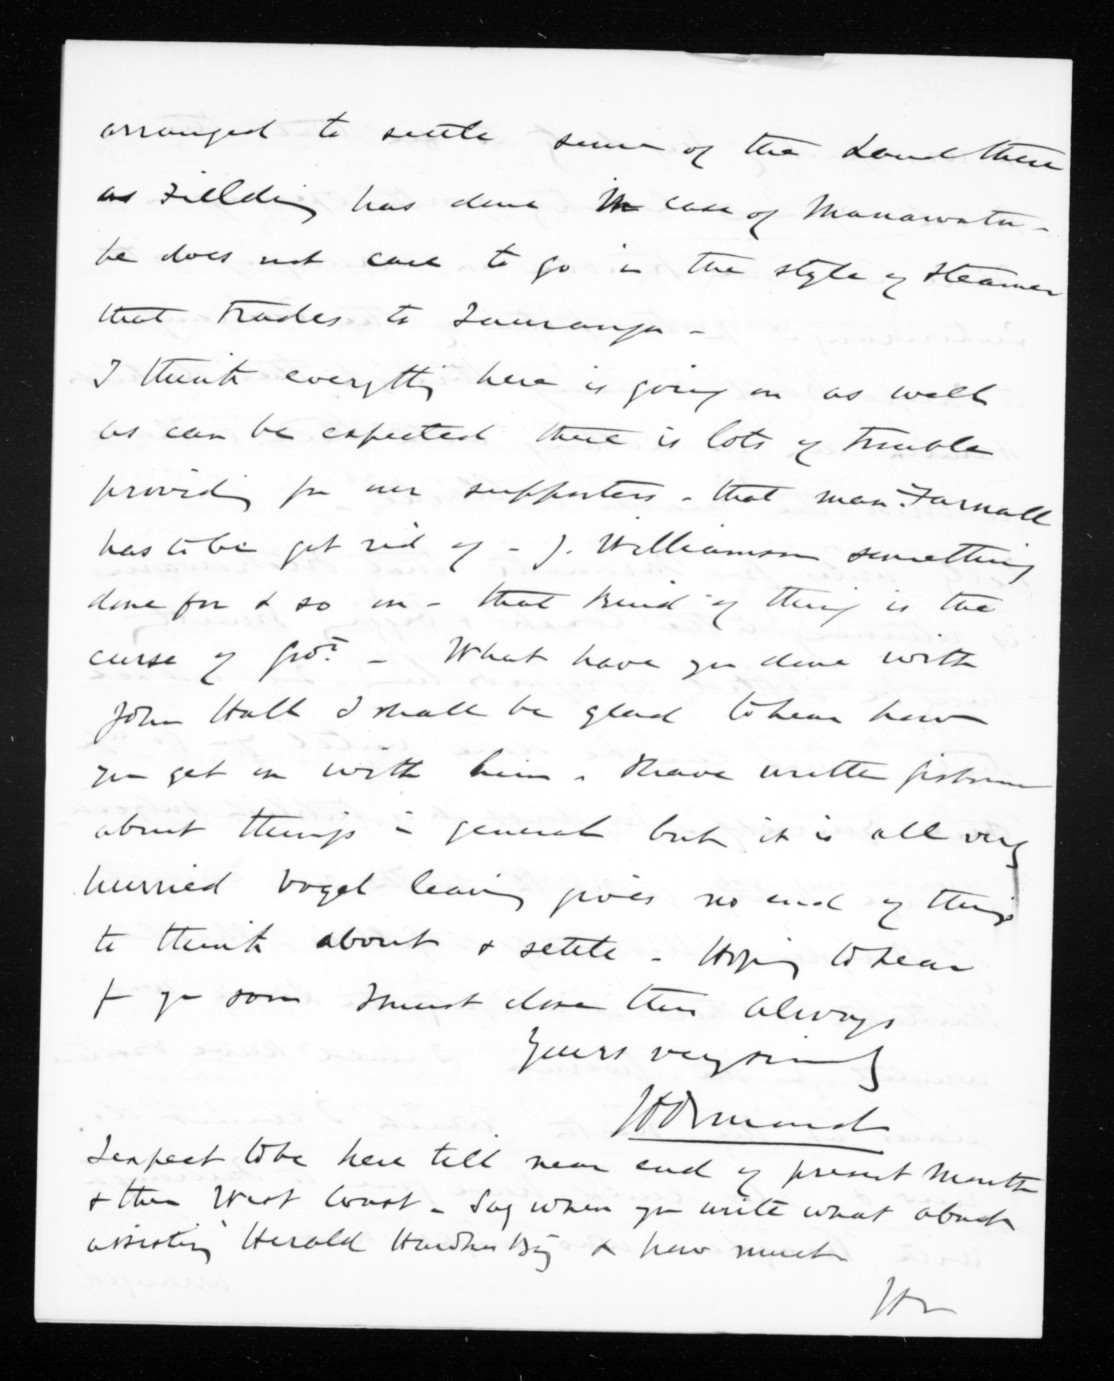 arranged to settle some of the Land there
as Fielding has done in case of Manawatu -
he does not care to go in the style of steamer
that trades to Tauranga -
I think everything here is going on as well
as can be expected there is lots of trouble
providing for our supporters - that man Farnall
has to be got rid of - J. Williamson something
done for & so on - that kind of thing is the
curse of Govt. - What have you done with
John Hall I shall be glad to hear how
you get on with him . I have written Gisborne
about things in general but it is all very
hurried Vogel leaving gives no end of things
to think about & settle - Hoping to hear
f you soon I must close this always
Yours very sincerely
JDOrmond
I expect to be here till near end of present Month
& then West Coast - Say when you write what about
assisting Herald Hawkes Bay & how much
JDO